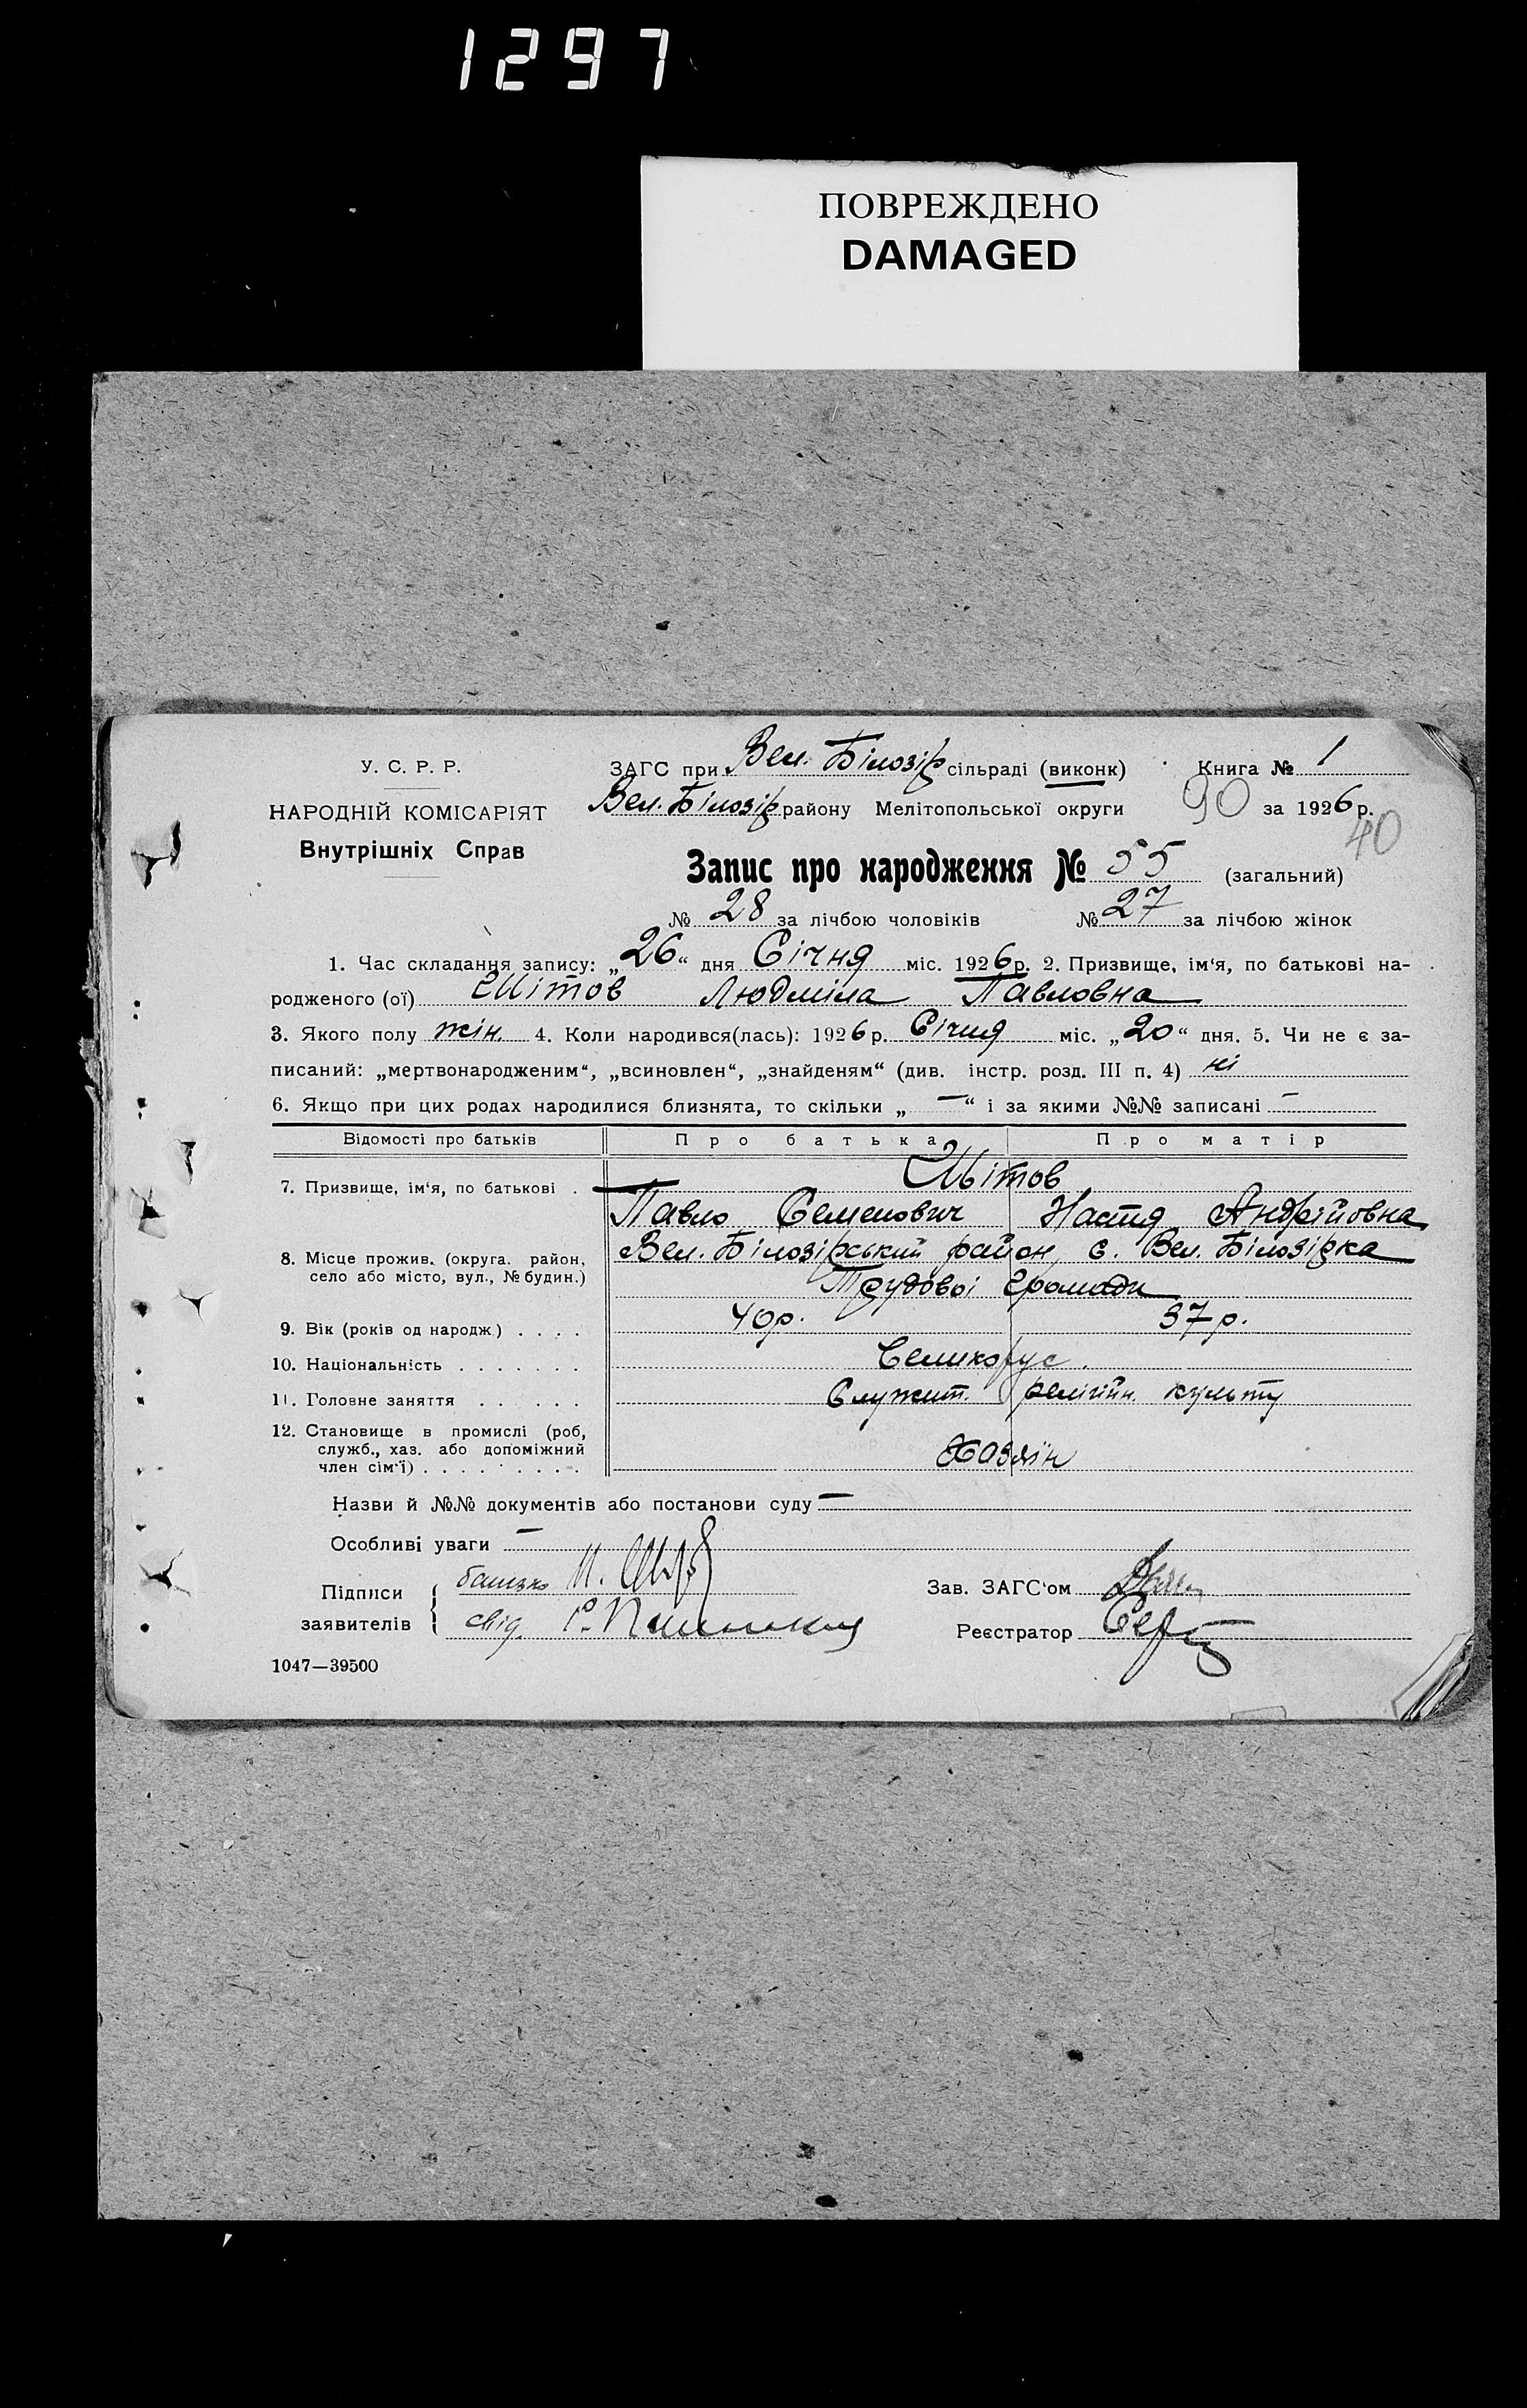 1297
ПОВРЕЖДЕНО
DAMAGED
У. С. Р. Р.
НАРОДНІЙ КОМІСАРІЯТ
Внутрішніх Справ
ЗАГС при Вел. Білозір сільраді (виконк) Книга № 1
Вел. Білозір району Мелітопольської округи 90 за 1926 р.
40
Запис про народження № 55 (загальний)
№ 28 за лічбою чоловіків № 27 за лічбою жінок
1. Час складання запису: „26“ дня Січня міс. 1926 р. 2. Призвище, ім‘я, по батькові на-
родженого (ої) Шітов Людміла Павловна
3. Якого полу жін. 4. Коли народився(лась): 1926 р. Січня міс. „20“ дня. 5. Чи не є за-
писаний: „мертвонародженим“, „всиновлен“, „знайденям“ (див. інстр. розд. III п. 4) ні
6. Якщо при цих родах народилися близнята, то скільки „ — “ і за якими №№ записані —
Відомості про батьків Про батька Про матір
7. Призвище, ім‘я, по батькові . Шітов
Павло Семенович Настя Андрійовна
8. Місце прожив. (округа. район, село або місто, вул., № будин.) Вел. Білозірський район, с. Вел. Білозірка
Трудової Громади
9. Вік (років од народж.) . . . . 40 р. 37 р.
10. Національність . . . . . . . Великорус.
11. Головне заняття . . . . . . Служит. релігійн. культу
12. Становище в промислі (роб, служб., хаз. або допоміжний член сім‘ї) . . . . . . . . . Хазяїн
Назви й №№ документів або постанови суду —
Особливі уваги —
Підписи заявителів { батько
свід.
Зав. ЗАГС‘ом
Реєстратор
1047—39500